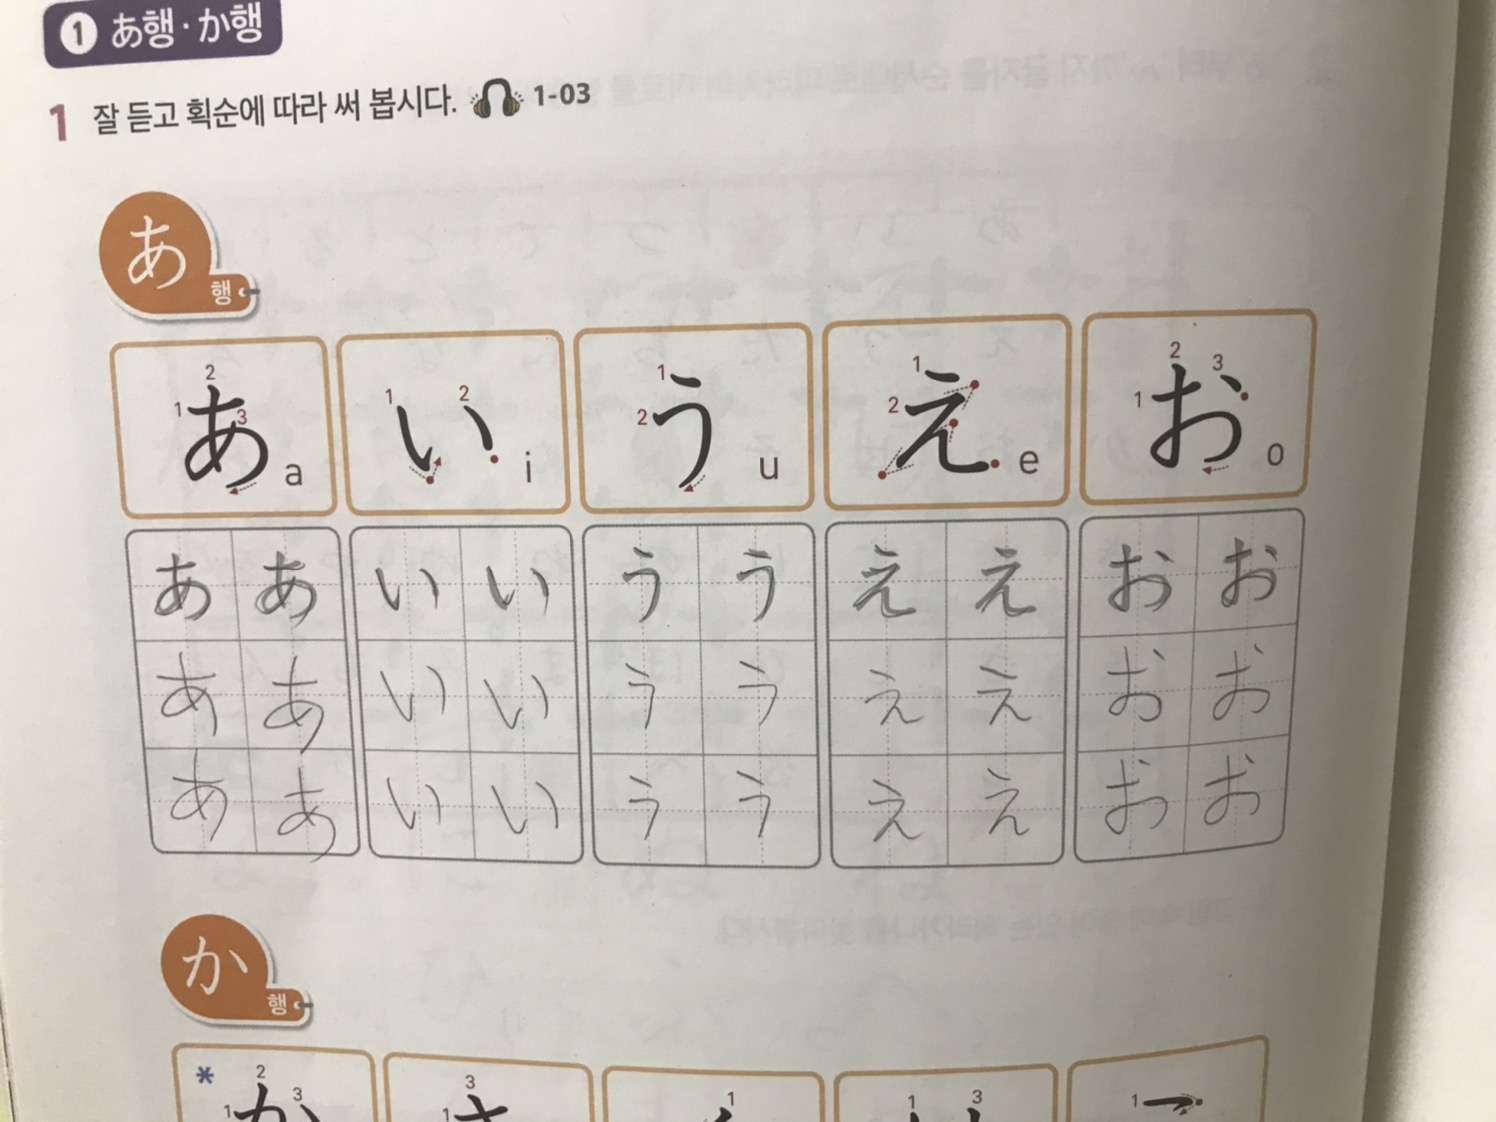 1 あ행·か행
1 잘 듣고 획순에 따라 써 봅시다. 1-03
あ행
1 2 3 あ a
1 2 い i
1 2 う u
1 2 え e
1 2 3 お o
あ あ い い う う え え お お
あ あ い い う う え え お お
あ あ い い う う え え お お
か행
* 1 2 3 か
1 3
1
1 3
1